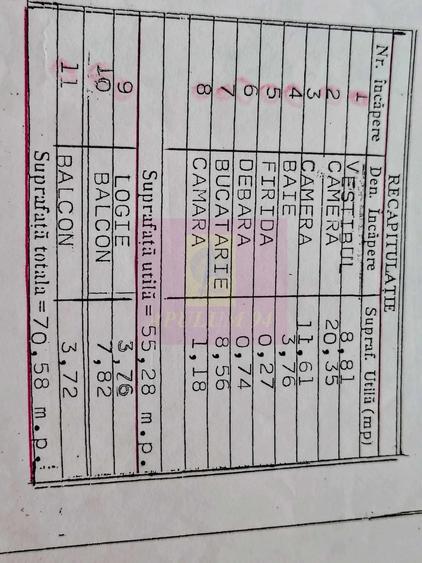 RECAPITULAȚIE
Nr. încăpere Den. Încăpere Supraf. Utilă (mp)
1 VESTIBUL 8,81
2 CAMERA 20,35
3 CAMERA 11,61
4 BAIE 3,76
5 FIRIDA 0,27
6 DEBARA 0,74
7 BUCATARIE 8,56
8 CAMARA 1,18
Suprafață utilă = 55,28 m.p.
9 LOGIE 3,76
10 BALCON 7,82
11 BALCON 3,72
Suprafață totala = 70,58 m.p.
APULUM 94